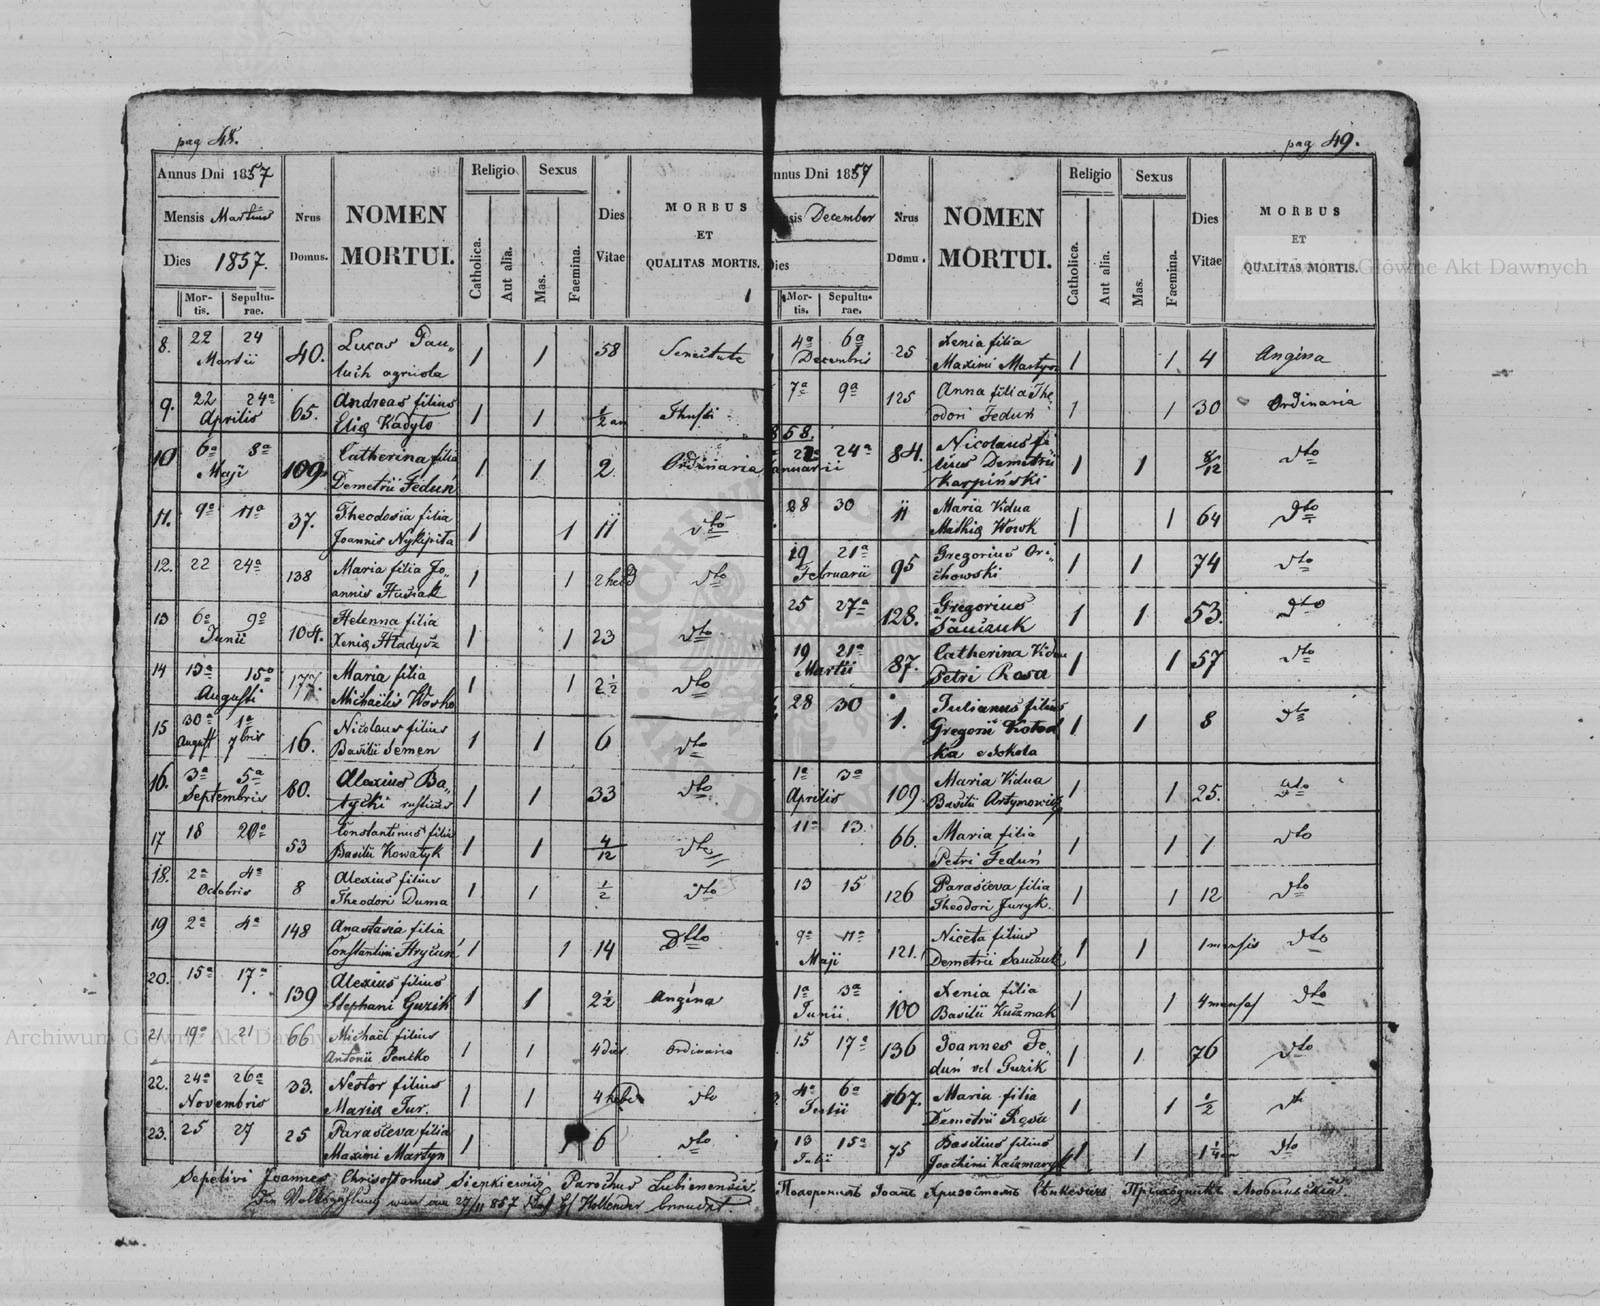 pag 48.
Annus Dni 1857
Mensis Martius
Dies 1857.
Mor-
tis.
Sepultu-
rae.
Nrus
Domus.
NOMEN
MORTUI.
Religio
Catholica.
Aut alia.
Sexus
Mas.
Faemina.
Dies
Vitae
MORBUS
ET
QUALITAS MORTIS.
8. 22 24 Martii 40. Lucas Pau„
luch agricola 1 1 58
9. 22 24a Aprilis 65. Andreas filius
Eliae Kadylo 1 1 1/2 an
10 6a 8a Maji 109. Catherina filia
Demetrii Feduń 1 1 2 Ordinaria
11. 9a 11a 37. Theodosia filia
Joannis 1 1 11 dto
12. 22 24a 138 Maria filia Jo„
annis 1 1 2 hebd dto
13 6a 9a Junii 104. Helenna filia
Xeniae Hladysz 1 1 23 dto
14 13a 15a Augusti 177. Maria filia
Michaelis 1 1 2 1/2 dto
15 30a August 1a 7bris 16. Nicolaus filius
Basilii Semen 1 1 6 dto
16. 3a 5a Septembris 80. Alexius Ba„
tycki rusticus 1 1 33 dto
17 18 20a 53 Constantinus filius
Basilii Kowatyk 1 1 4/12 dto
18. 2a 4a Octobris 8 Alexius filius
Theodori Duma 1 1 1/2 dto
19 2a 4a 148 Anastasia filia
Constantini 1 1 14 dtto
20. 15a 17a 139 Alexius filius
Stephani Guzik 1 1 2 1/2 Angina
21 19a 21 66 Michael filius
Antonii Penko 1 1 4 dies Ordinaria
22. 24a 26a Novembris 33. Nestor filius
Mariae Tur. 1 1 4 hebd dto
23. 25 27 25 Parasceva filia
Maximi Martyn 1 1 6 dto
Sepelivi Joannes Chrisostomus Sienkiewicz Parochus Lubienensis
Die Volkszählung 27/11 857 Hollender
pag 49.
nnus Dni 1857
nsis December
Dies
Mor-
tis.
Sepultu-
rae.
Nrus
Domu.
NOMEN
MORTUI.
Religio
Catholica.
Aut alia.
Sexus
Mas.
Faemina.
Dies
Vitae
MORBUS
ET
QUALITAS MORTIS.
4a 6a Decembris 25 Xenia filia
Maximi Martyn 1 1 4 Angina
7a 9a 125 Anna filia The„
odori Feduń 1 1 30 Ordinaria
858.
22a 24a anuarii 84. Nicolaus fi
lius Demetrii
Karpiński 1 1 8/12 dto
28 30 11 Maria Vidua
Mathiae Wowk 1 1 64 dto
19 21a Februarii 95 Gregorius Or„
chowski 1 1 74 dto
25 27a 128. Gregorius
Sauczuk 1 1 53. dto
19 21a Martii 87. Catherina Vidua
Petri Rosa 1 1 57 dto
28 30 1. Julianus filius
Gregorii Kolod
ka Sokola 1 1 8 dto
1a 3a Aprilis 109 Maria Vidua
Basilii Artymowicz 1 1 25. dto
11a 13 66. Maria filia
Petri Feduń 1 1 1 dto
13 15 126 Parasceva filia
Theodori Juryk. 1 1 12 dto
9a 11a Maji 121. Niceta filius
Demetrii Sauczuk 1 1 1 mensis dto
1a 3a Junii 100 Xenia filia
Basilii Kuzmak 1 1 4 menses dto
15 17a 136 Joannes Fe„
duń vel Guzik 1 1 76 dto
4a 6a Julii 167. Maria filia
Demetrii Rosa 1 1 1/2 dto
13 15a Julii 75 Basilius filius
Joachimi Kaczmaryk 1 1 1 1/4 an dto
Похоронилъ Іоанъ Хризостомъ Сѣнкевичъ
Archiwum Główne Akt Dawnych
Archiwum Główne Akt Dawnych